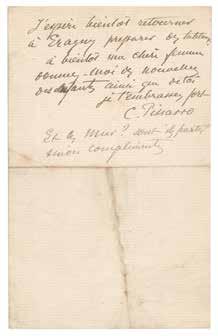 J'espère bientôt retourner
à Eragny préparer des tableaux
à bientôt ma chère femme
donne-moi des nouvelles
des enfants ainsi que de toi
je t'embrasse fort
C. Pissarro
Et les Murs? sont-ils partis
sinon compliments